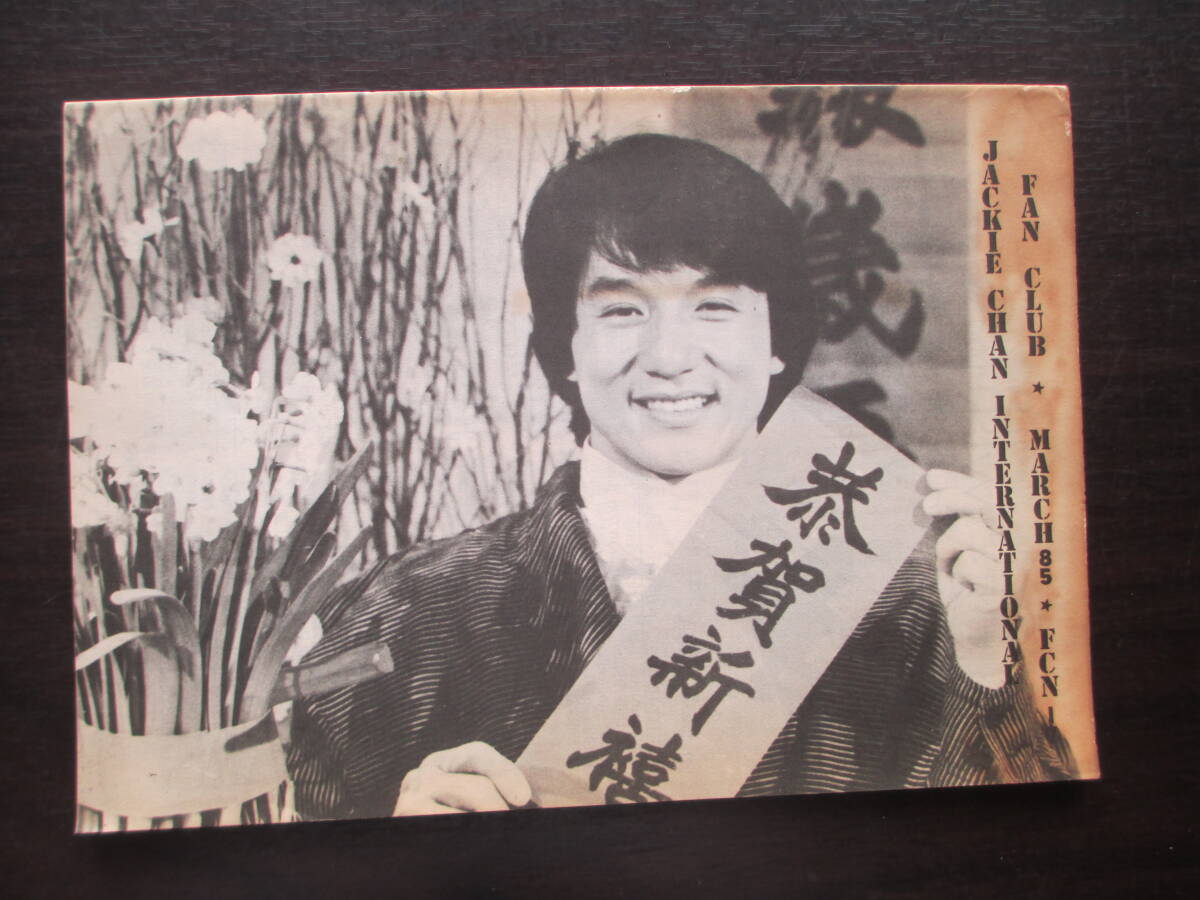 JACKIE CHAN INTERNATIONAL
FAN CLUB ★ MARCH 85 ★ FCN 1
恭賀新禧
歲